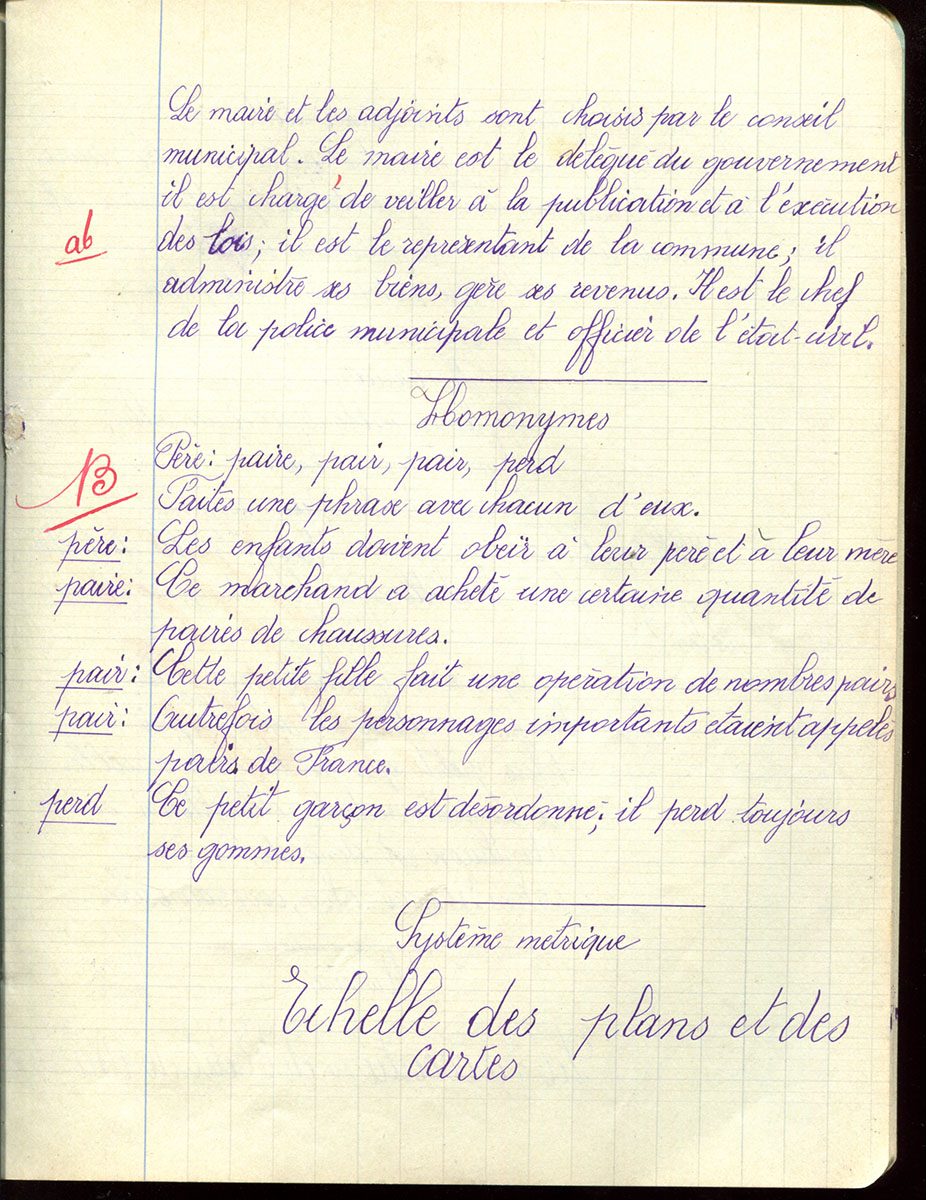 Le maire et les adjoints sont choisis par le conseil
municipal. Le maire est le délégué du gouvernement
il est chargé de veiller à la publication et à l'exécution
ab
des lois; il est le représentant de la commune; il
administre ses biens, gère ses revenus. Il est le chef
de la police municipale et officier de l'état-civil.
Homonymes
Père: paire, pair, pair, perd
B
Faites une phrase avec chacun d'eux.
père: Les enfants doivent obéir à leur père et à leur mère
paire: Ce marchand a acheté une certaine quantité de
paires de chaussures.
pair: Cette petite fille fait une opération de nombres pairs
pair: Autrefois les personnages importants étaient appelés
pairs de France.
perd Ce petit garçon est désordonné; il perd toujours
ses gommes.
Système métrique
Echelle des plans et des
cartes